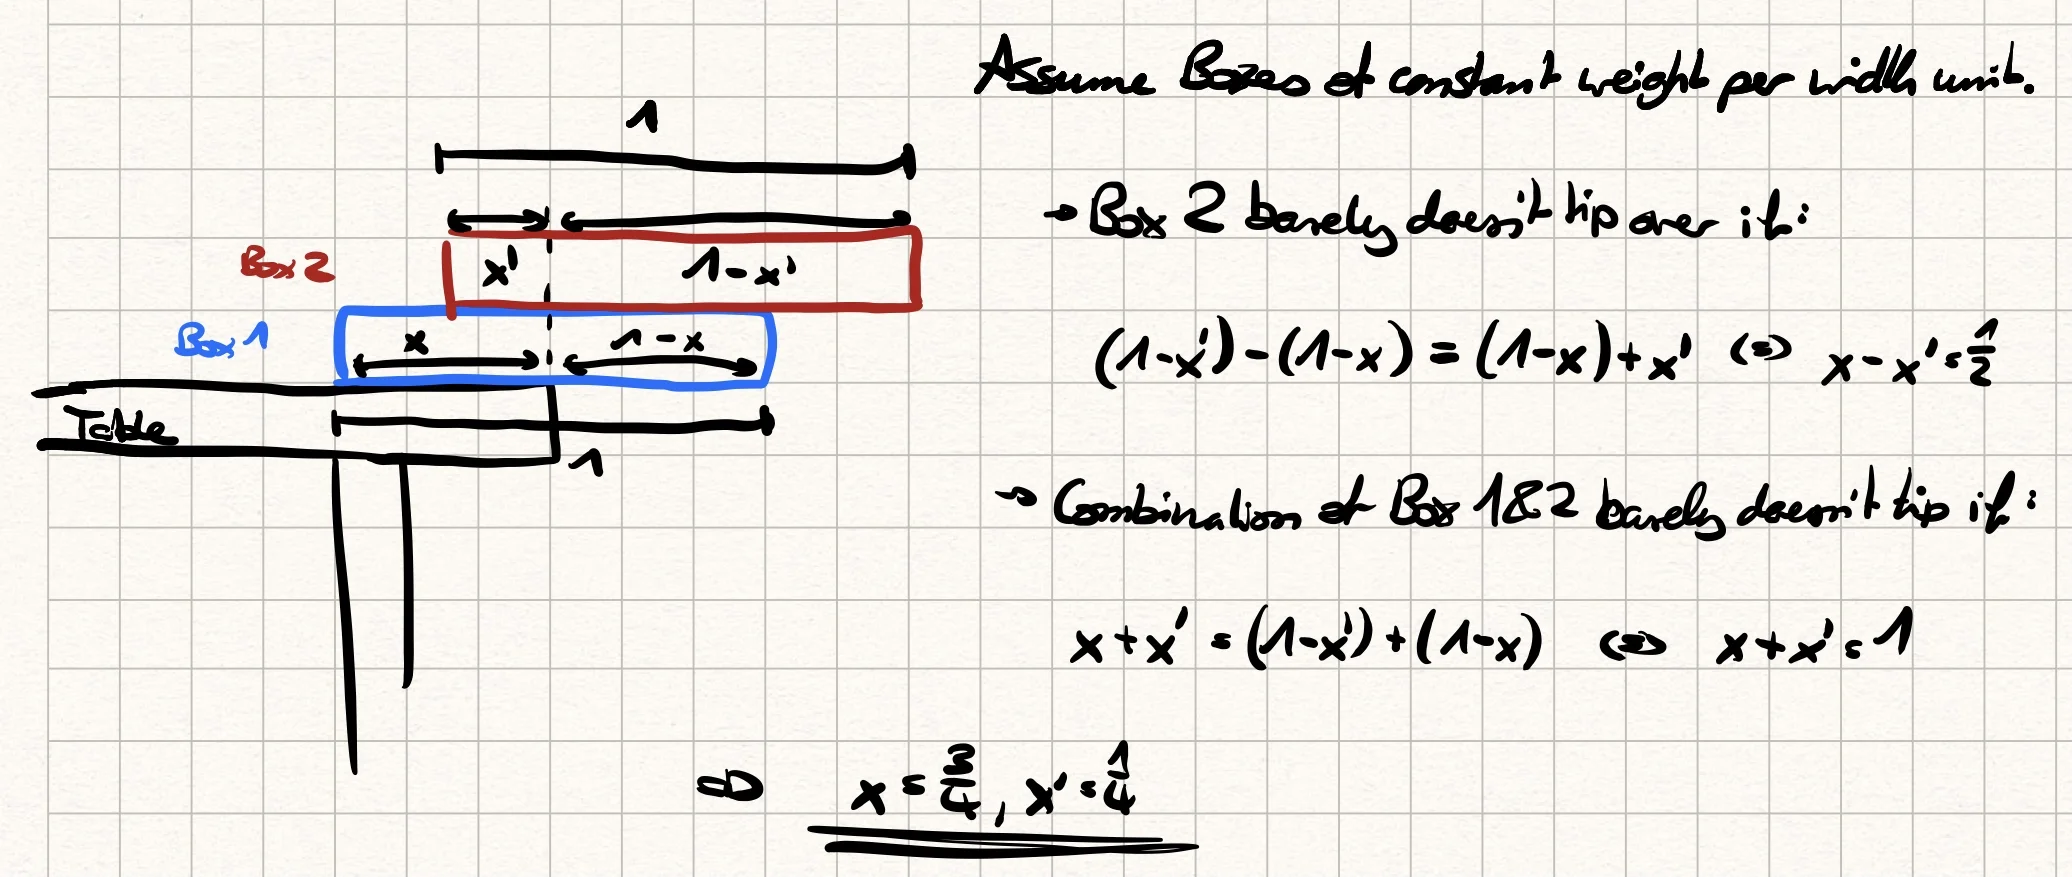 Assume Boxes of constant weight per width unit.
1
→ Box 2 barely doesn't tip over if:
Box 2
x' 1-x'
Box 1
x 1-x
(1-x')-(1-x) = (1-x)+x' ⇔ x-x' = 1/2
Table
1
→ Combination of Box 1&2 barely doesn't tip if:
x+x' = (1-x')+(1-x) ⇔ x+x' = 1
⇒ x = 3/4, x' = 1/4